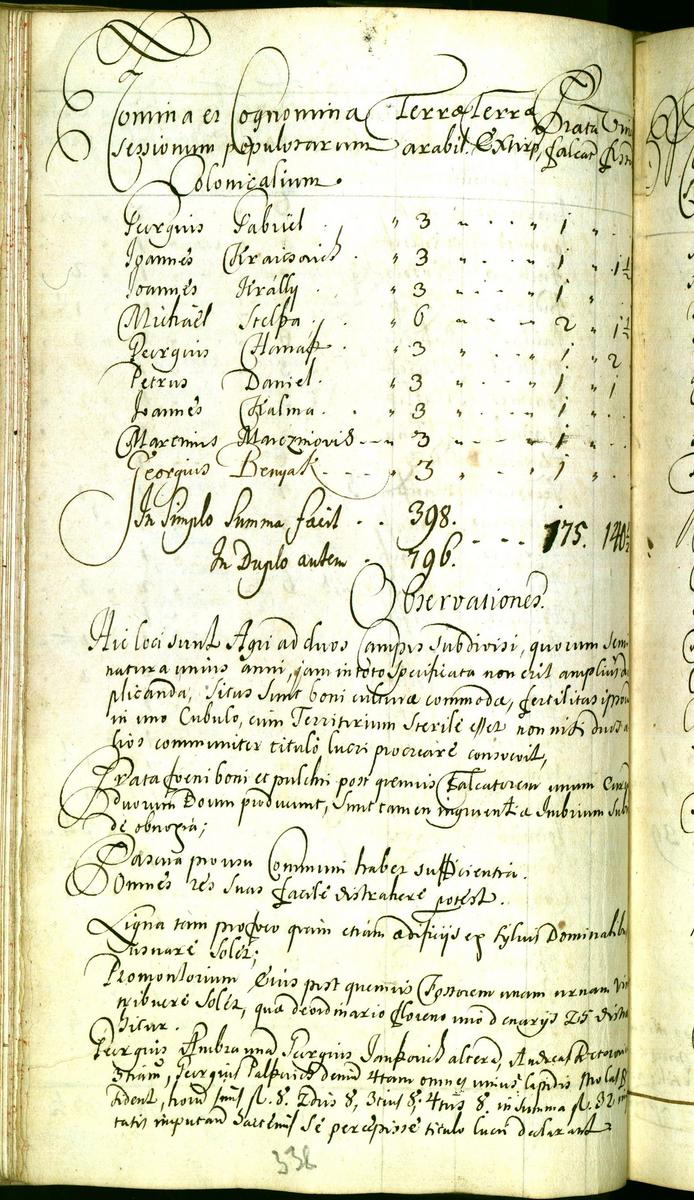 Nomina et Cognomina Terræ Terræ Prata
Sessionum populosarum arabil. Extirp. falcat.
Colonicalium.
Georgius Gabriel 3 1
Joannes Kraicsovich 3 1 1½
Joannes Krally 3 1
Michael Stelpa 6 2 1½
Georgius Hanak 3 1 2
Petrus Daniel 3 1 1
Joannes Kalma 3 1
Martinus Marczinovis 3 1
Georgius Benyak 3 1
In Simplo Summa facit 398. 175. 140½
In Duplo autem 796.
Observationes.
Hic loci sunt Agri ad duos Campos subdivisi, quorum sem
natura unius anni, jam in toto specificata non erit amplius du
plicanda, Situs sunt boni culturæ commodæ, fertilitas
in uno Cubulo, cum Territorium Sterile esset non nisi duos a
lios communiter titulo lucri procreare consuevit,
Prata foeni boni et pulchri post quemvis Falcatorem unum Curr
duorum Boum producunt, sunt tamen Imbrium
de obnoxia;
Pascua pro usu Communi habet sufficientia.
Omnes res suas facile distrahere potest.
Ligna tam pro foco quam etiam ædificijs ex sylvis Dominalibu
usuare solet;
Promontorium Ejus post quemvis Fossorem unam urnam Vin
tribuere solet, quæ de ordinario floreno uno denarijs 25 distra
hitur.
Georgius Ambra una, Georgius Jankovich altera, Andreas
3tiam, Georgius Palkovich denuo 4tam omnes unius lapidis Molas
tident, horum 1mus fl. 8. 2dus 8, 3tius 8, 4tus 8. in summa fl. 32
tatis imputan se percepisse titulo lucri declarant.
338